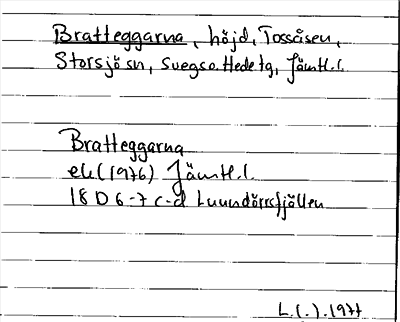 Bratteggarna, höjd, Tossåsen,
Storsjö sn, Svegs o. Hede tg, Jämtl.l.
Bratteggarna
ek (1976) Jämtl.l.
18 D 6-7 c-d Lunndörrsfjällen
L.(.).1977